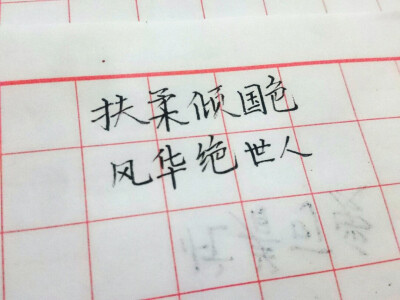 扶柔倾国色
风华绝世人